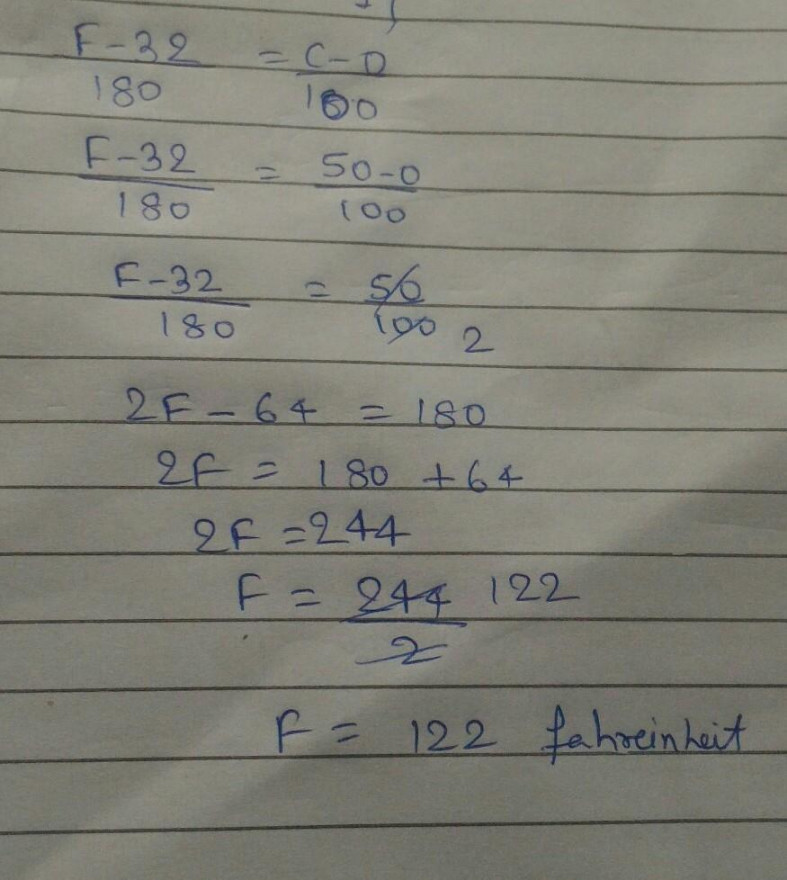 F-32 = C-0
180 100
F-32 = 50-0
180 100
F-32 = 50
180 100 2
2F - 64 = 180
2F = 180 + 64
2F = 244
F = 244 122
2
F = 122 fahreinheit